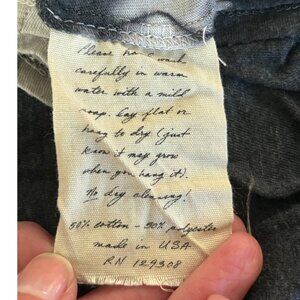 Please hand wash
carefully in warm
water with a mild
soap. Lay flat or
hang to dry (just
know it may grow
when you hang it).
No dry cleaning!
50% cotton - 50% polyester
made in USA
RN 129508